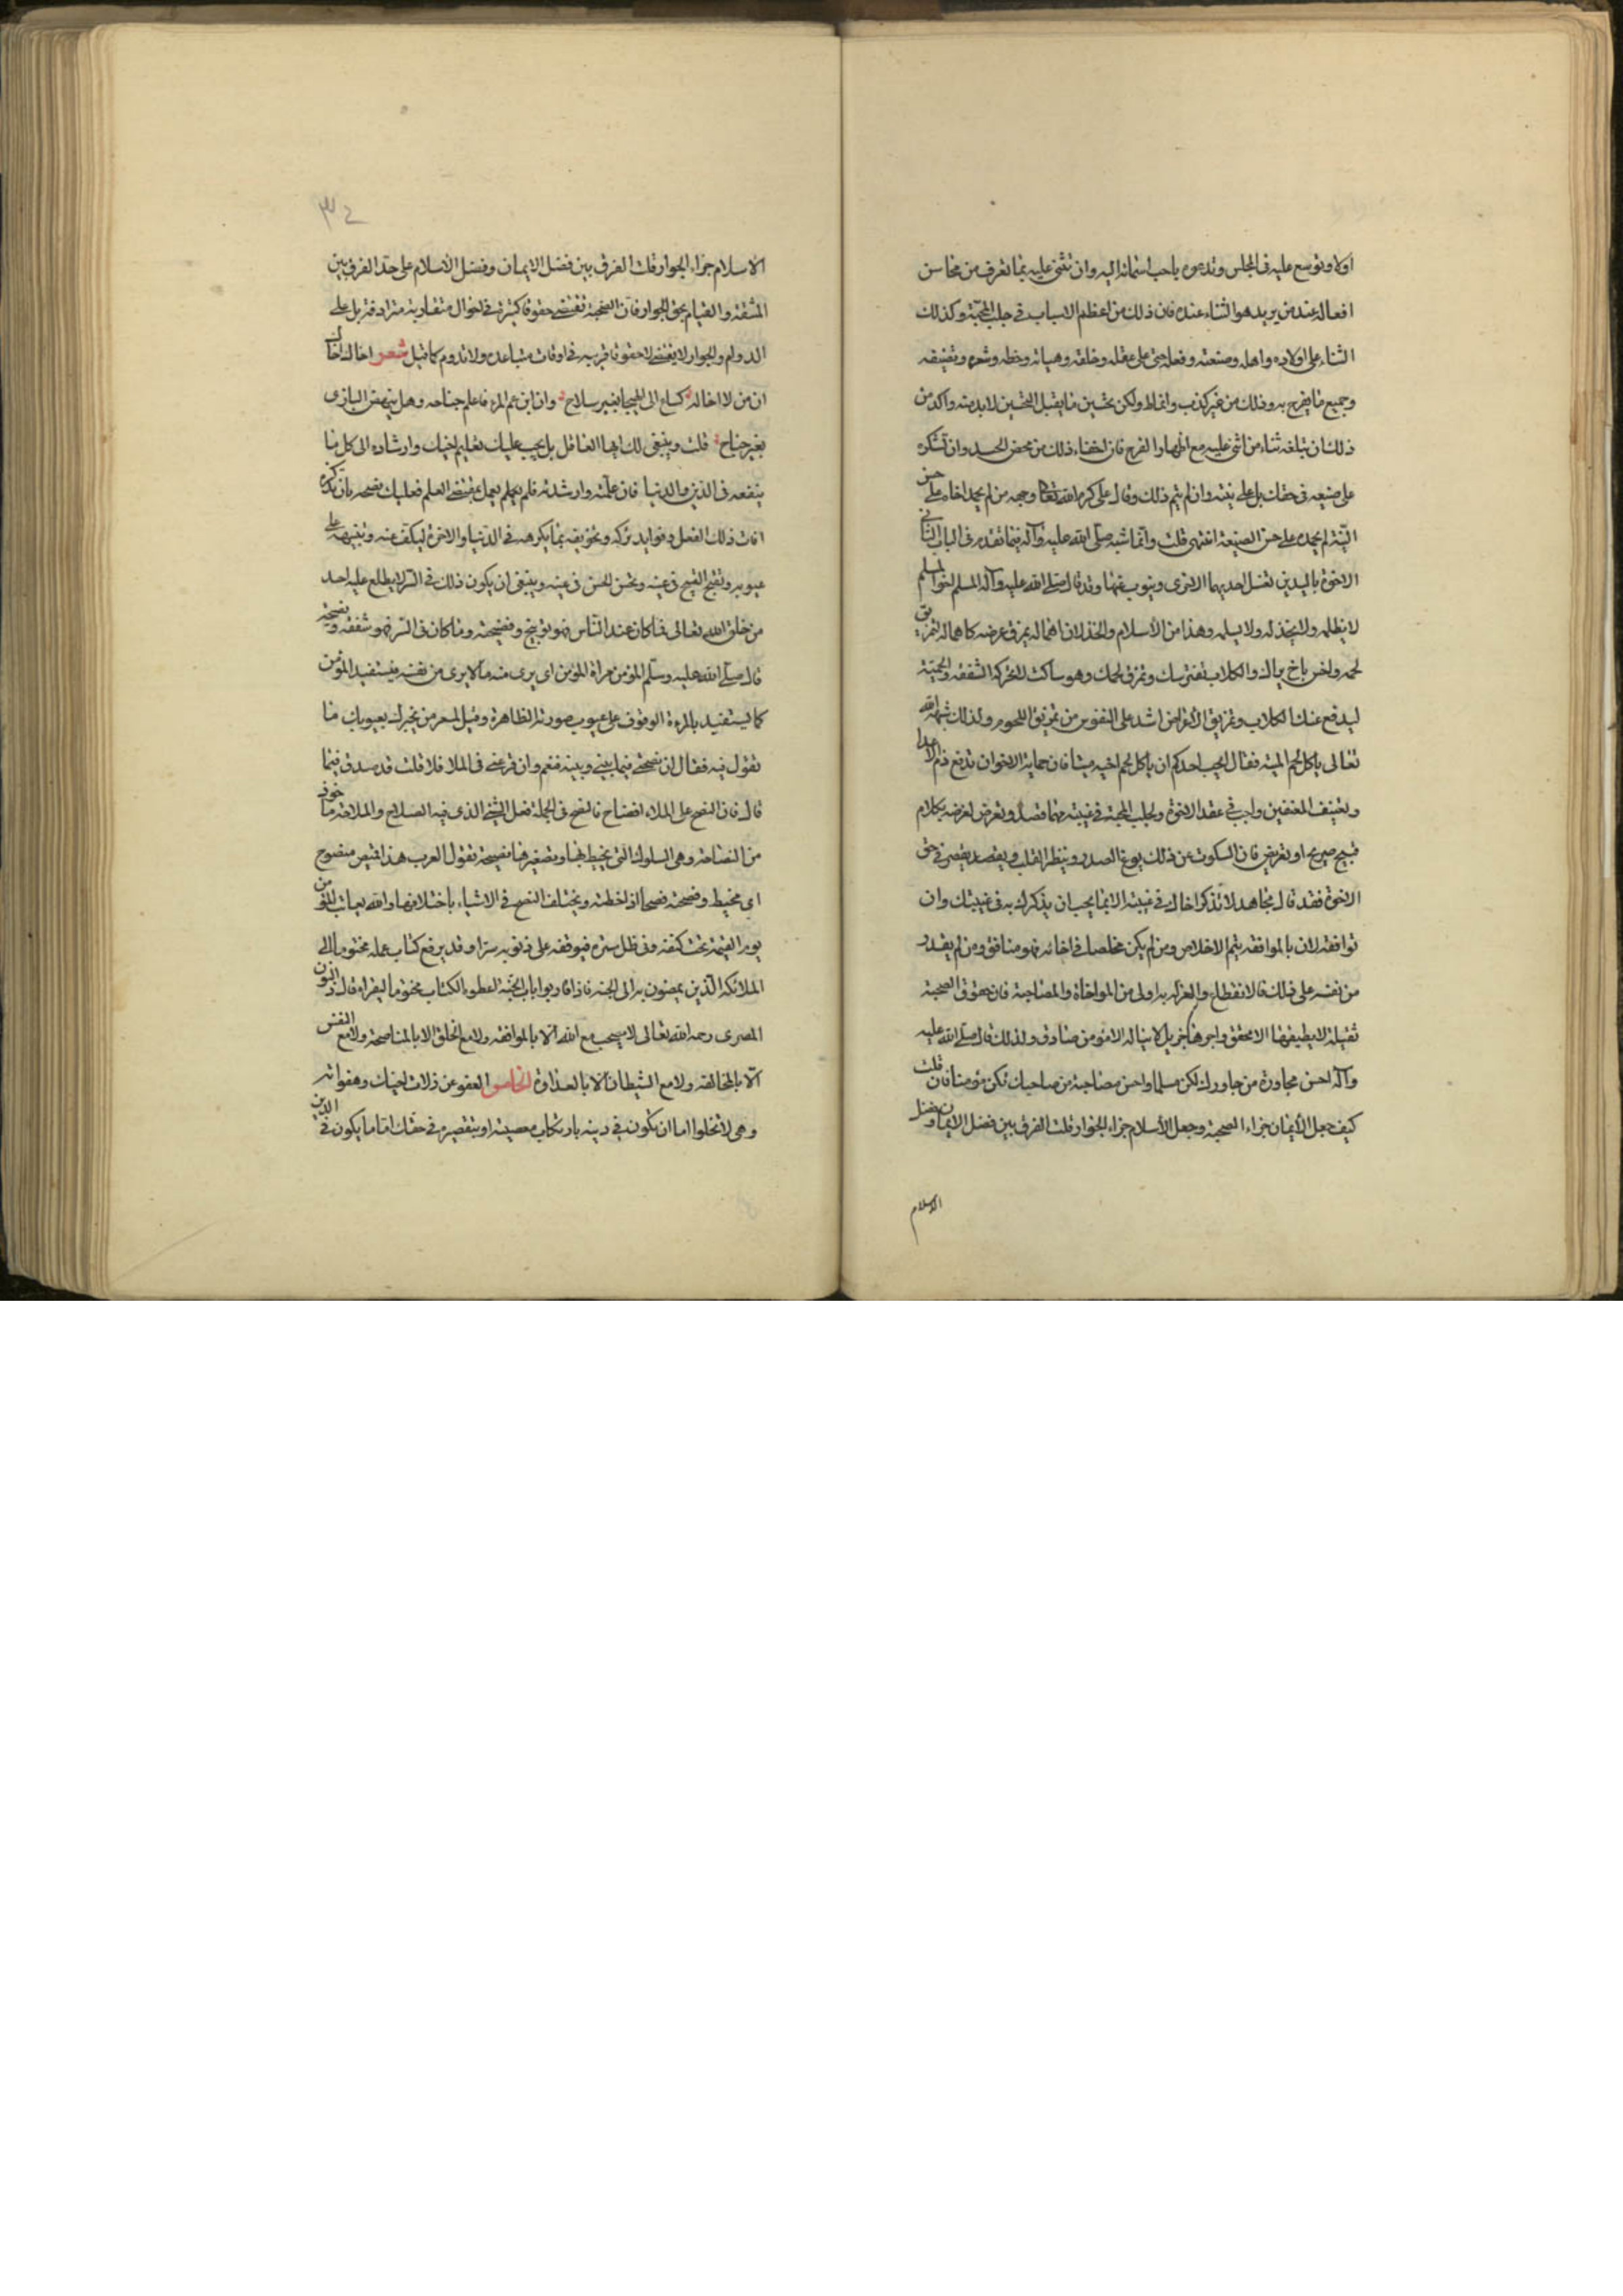 اولا وتوسع عليه فى المجلس وتدعوه باحب اسمائه اليه وان تثنى عليه بما تعرف من محاسن
افعاله عند من يريد هو الثناء عنده فان ذلك من اعظم الاسباب فى جلب المحبة وكذلك
الثناء على اولاده واهله وصنعته وفعله حتى على عقله وخلقه وهيأته وخطه وشعره وتصنيفه
وجميع ما يفرح به وذلك من غير كذب وافراط ولكن تحسين ما يقبل التحسين لا بد منه وآكد من
ذلك ان تبلغه ثناء من اثنى عليه مع اظهار الفرح فان اخفاء ذلك من محض الحسد وان تشكره
على صنيعه فى حقك بل على نيته وان لم يتم ذلك وقال على كرم الله تعالى وجهه من لم يحمد اخاه على حسن
النية لم يحمده على حسن الصنيعة انتهى قلت وانما شبه صلى الله عليه وآله فيما تقدم فى الباب الثانى
الاخوة باليدين تغسل احديهما الاخرى وينوب عنها وقد قال صلى الله عليه وآله المسلم اخو المسلم
لا يظلمه ولا يخذله ولا يسلمه وهذا من الأسلام والخذلان اهماله بمزق عرضه كاهماله لتمزيق
لحمه واخس باخ يراك والكلاب تفترسك وتمزق لحمك وهو ساكت لا تحركه الشفقة والحمية
ليدفع عنك الكلاب وتمزيق الأعراض اشد على النفوس من تمزيق اللحوم ولذلك شبهه الله
تعالى باكل لحم الميتة فقال ايحب احدكم ان ياكل لحم اخيه ميتا فان حماية الاخوان تدفع ذم الاعدا
وتعنيف المعنفين واجب فى عقد الاخوة ولجلب المحبة فى غيبته مهما قصد او تعرض لعرضه بكلام
قبيح صريح او تعريض فان السكوت عن ذلك يوغر الصدر وينفر القلب ويقصد بقصر فى حق
الاخوة فقد قال مجاهد لا تذكر اخاك فى غيبته الا بما يحب ان يذكرك به فى غيبتك وان
توافقه لان بالموافقة يتم الاخلاص ومن لم يكن مخلصا فى اخائه فهو منافق ومن لم يقدر
من نفسه على ذلك فالانقطاع والعزلة به اولى من المواخاة والمصاحبة فان حقوق الصحبة
ثقيلة لا يطيقها الا محقق واجرها جزيل لا يناله الا مؤمن صادق ولذلك قال صلى الله عليه
وآله احسن مجاورة من جاورك تكن مسلما واحسن مصاحبة من صاحبك تكن مؤمنا فان قلت
كيف جعل الأيمان جزاء الصحبة وجعل الأسلام جزاء الجوار قلت الفرق بين فضل الايمان وفضل
الاسلام
٣٤
الاسلام جزاء الجوار قلت الفرق بين فضل الايمان وفضل الأسلام على حد الفرق بين
المشقة والقيام بحق الجوار فان الصحبة تقتضى حقوقا كثيرة فى احوال متقاربة مترادفة بل على
الدوام والجوار لا يقتضى الا حقوقا قريبة فى اوقات متباعدة ولا تدوم كما قيل شعر اخاك اخاك
ان من لا اخا له كساع الى الهيجا بغير سلاح وان ابن عم المرء فاعلم جناحه وهل ينهض البازى
بغير جناح قلت وينبغى لك ايها العاقل بل يجب عليك تعليم اخيك وارشاده الى كل ما
ينفعه فى الدين والدنيا فان علمته وارشدته فلم يعلم يعمل بمقتضى العلم فعليك بنصحه بان تذكره
افات ذلك الفعل وفوايد تركه وتخويفه بما يكرهه فى الدنيا والاخرة ليكف عنه وتنبيهه على
عيوبه وتقبح القبيح فى عينه وتحسن الحسن فى عينه وينبغى ان يكون ذلك فى السر لا يطلع عليه احد
من خلق الله تعالى فما كان عند الناس فهو توبيخ وفضيحة وما كان فى السر فهو شفقة ونصيحة
قال صلى الله عليه وسلم المؤمن مرآة المؤمن اى يرى منه ما لا يرى من نفسه فيستفيد المؤمن
كما يستفيد بالمرءة الوقوف على عيوب صورته الظاهرة وقيل لمسعر من يخبرك بعيوبك ما
تقول فيه فقال ان نصحنى فيما بينى وبينه فنعم وان قرعنى فى الملا فلا قلت قد صدق فيما
قال فان النصح على الملاء افتضاح فالنصح فى الجملة فعل الشئ الذى فيه الصلاح والملاحة ماخوذ
من النصاحة وهى السلوك التى يخيط بها وتصغيرها نصيحة تقول العرب هذا قميص منصوح
اى مخيط ونصحته نصحا اذا خطته ويختلف النصح فى الاشياء باختلافها والله يعاتب المؤمن
يوم القيمة تحت كنفه وفى ظل ستره فيوقفه على ذنوبه سرا وقد يرفع كتاب عمله مختوما الى
الملائكة الذين يمضون به الى الجنة فاذا قاربوا باب الجنة اعطوه الكتاب مختوما ليقراه قال ذو النون
المصرى رحمه الله تعالى لا تصحب مع الله الا بالموافقة ولا مع الخلق الا بالمناصحة ولا مع النفس
الا بالمخالفة ولا مع الشيطان الا بالعداوة الخامس العفو عن زلات اخيك وهفواته
وهى لا تخلوا اما ان تكون فى دينه بارتكاب معصية او بتقصيره فى حقك اما ما يكون فى الدين